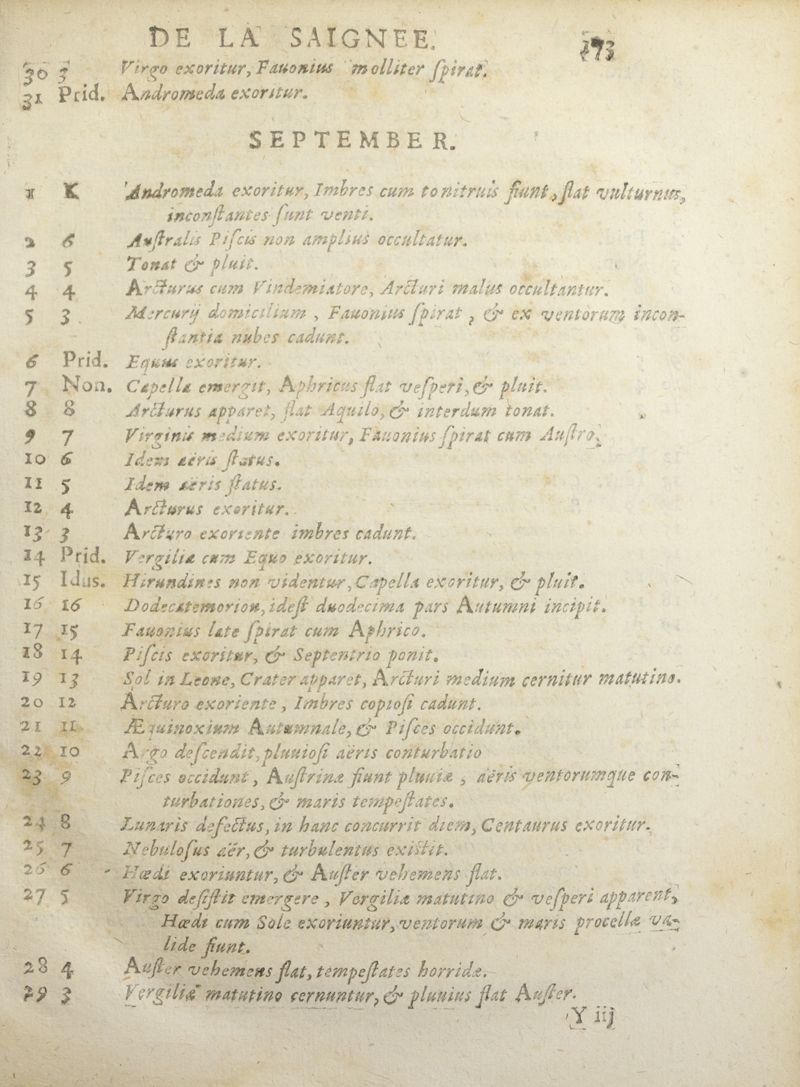 DE LA SAIGNEE. 173
30 3 Virgo exoritur, Fauonius molliter ſpirat.
31 Prid. Andromeda exoritur.
SEPTEMBER.
1 K Andromeda exoritur, Imbres cum tonitruis fiunt, flat vulturnus,
inconſtantes ſunt venti.
2 6 Auſtralis Piſcis non amplius occultatur.
3 5 Tonat & pluit.
4 4 Arcturus cum Vindemiatore, Arcturi malus occultantur.
5 3 Mercurij domicilium, Fauonius ſpirat, & ex ventorum incon-
ſtantia nubes cadunt.
6 Prid. Equus exoritur.
7 Non. Capella emergit, Aphricus flat veſperi, & pluit.
8 8 Arcturus apparet, flat Aquilo, & interdum tonat.
9 7 Virginis medium exoritur, Fauonius ſpirat cum Auſtro.
10 6 Idem aëris ſtatus.
11 5 Idem aëris ſtatus.
12 4 Arcturus exoritur.
13 3 Arcturo exoriente imbres cadunt.
14 Prid. Vergiliæ cum Equo exoritur.
15 Idus. Hirundines non videntur, Capella exoritur, & pluit.
16 16 Dodecatemorion, ideſt duodecima pars Autumni incipit.
17 15 Fauonius late ſpirat cum Aphrico.
18 14 Piſcis exoritur, & Septentrio ponit.
19 13 Sol in Leone, Crater apparet, Arcturi medium cernitur matutino.
20 12 Arcturo exoriente, Imbres copioſi cadunt.
21 11 Æquinoxium Autumnale, & Piſces occidunt.
22 10 Argo deſcendit, pluuioſi aëris conturbatio
23 9 Piſces occidunt, Auſtrinæ fiunt pluuiæ, aëris ventorumque con-
turbationes, & maris tempeſtates.
24 8 Lunaris defectus, in hanc concurrit diem, Centaurus exoritur.
25 7 Nebuloſus aër, & turbulentus exiſtit.
26 6 Hœdi exoriuntur, & Auſter vehemens flat.
27 5 Virgo deſiſtit emergere, Vergiliæ matutino & veſperi apparent,
Hœdi cum Sole exoriuntur, ventorum & maris procellæ va-
lide fiunt.
28 4 Auſter vehemens flat, tempeſtates horridæ.
29 3 Vergiliæ matutino cernuntur, & pluuius flat Auſter.
Y iij